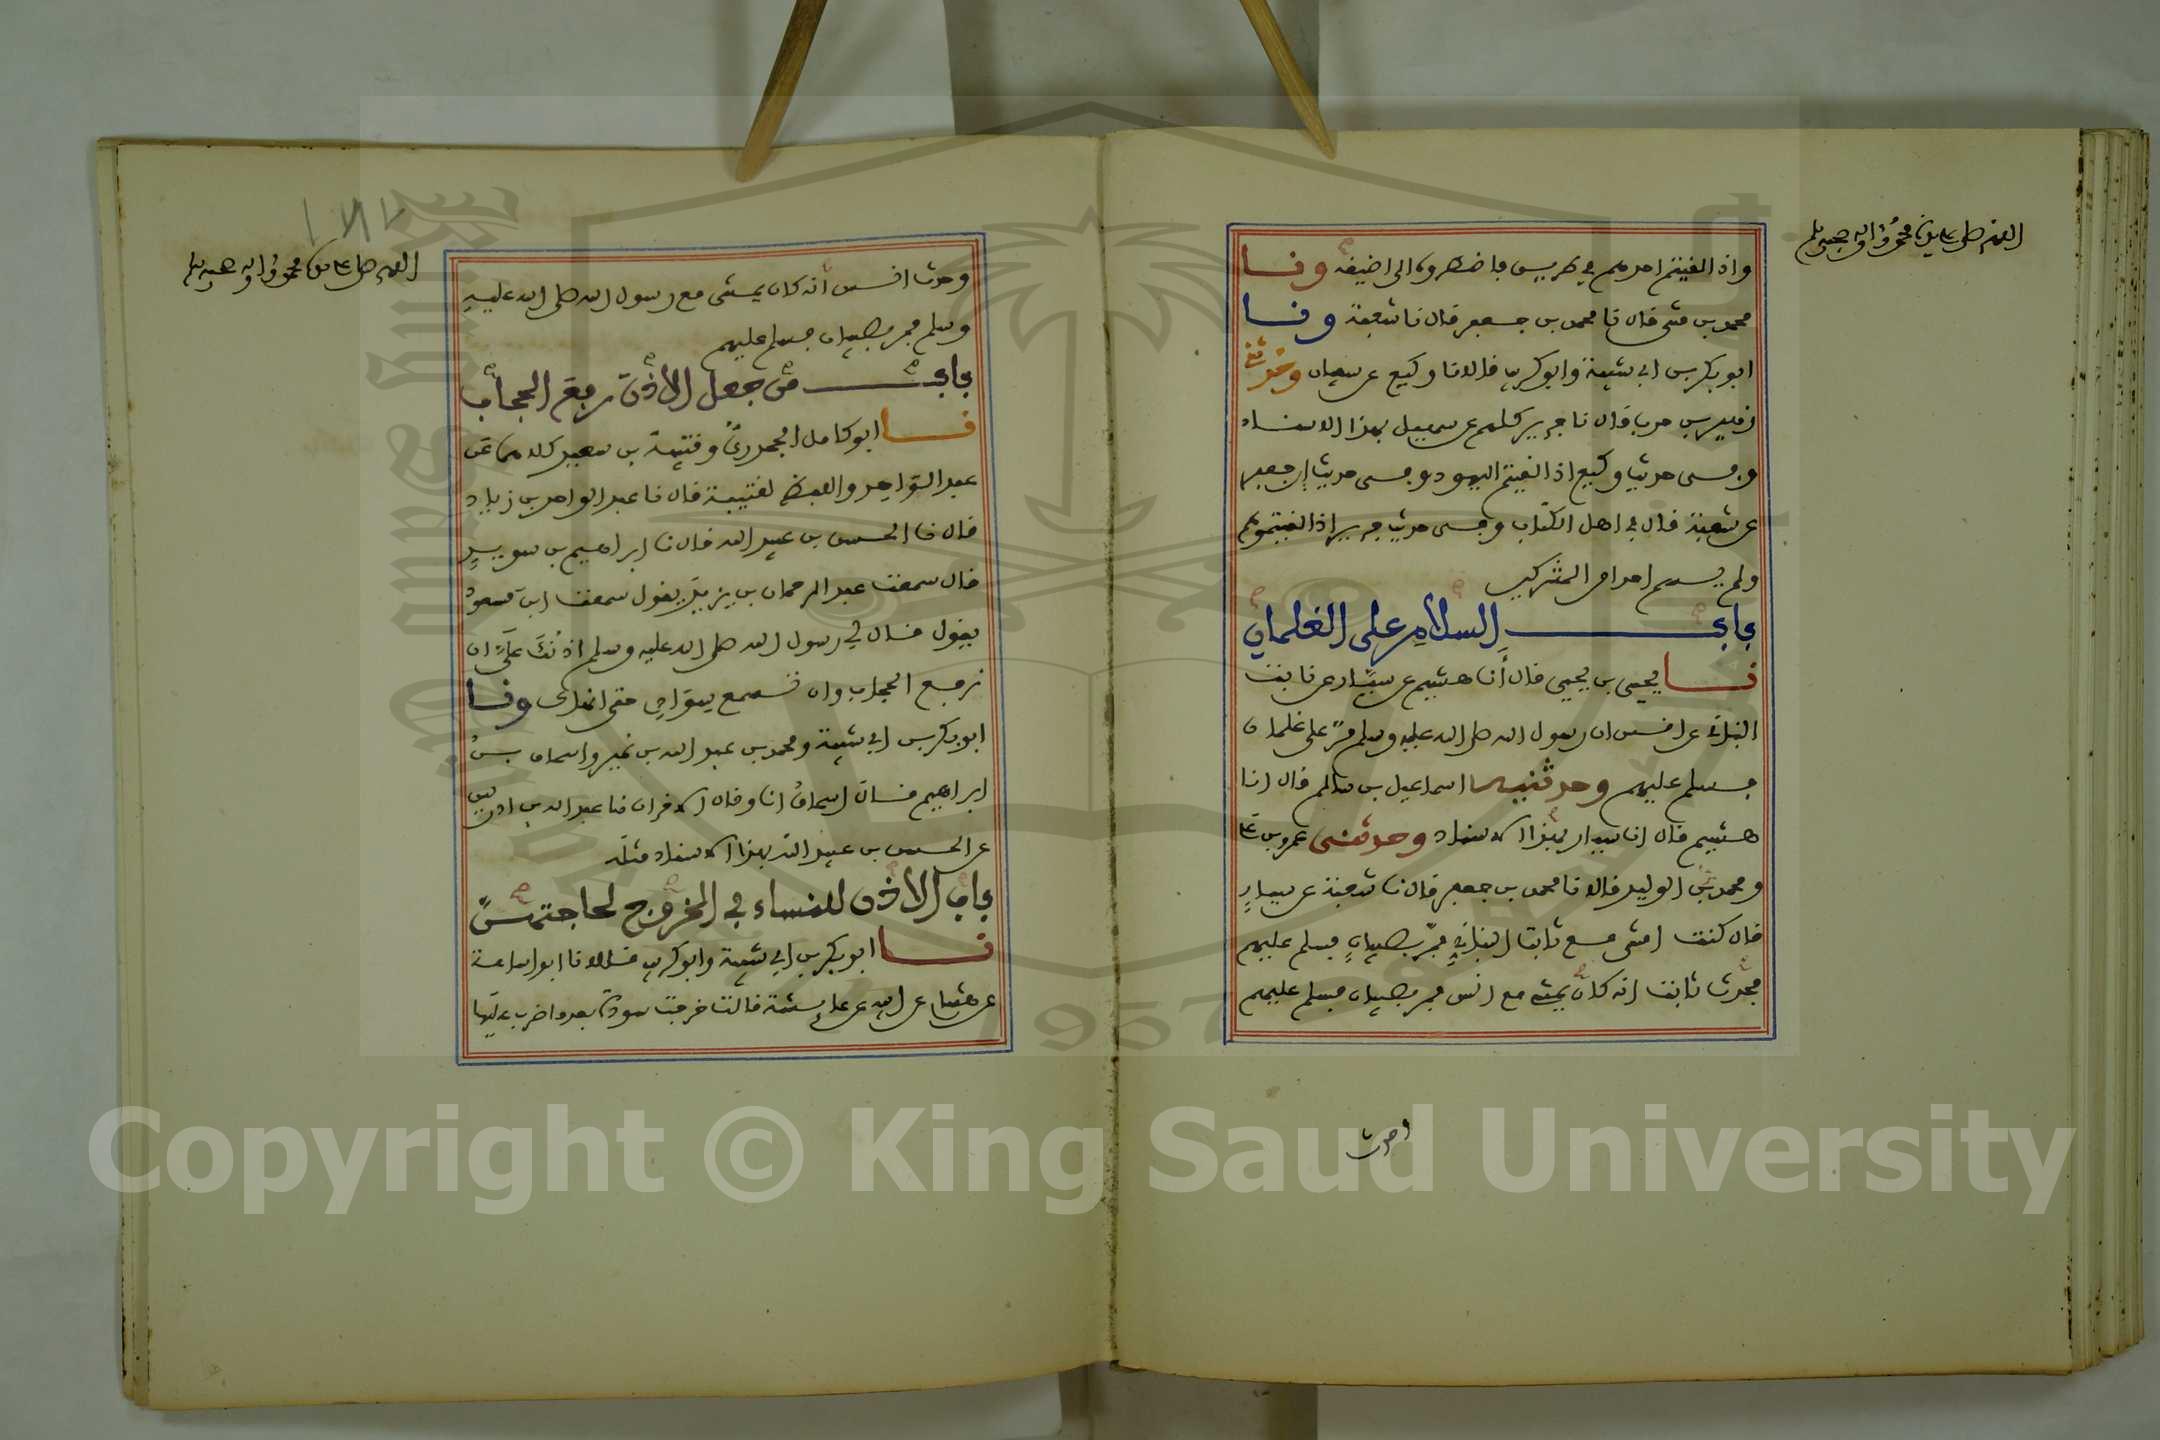 اللهم صل على سيدنا محمد وآله وصحبه وسلم
واذا لفيتم احدهم في طريق فاضطروه الى اضيفه ونا
محمد بن مثنى قال نا محمد بن جعفر قال نا شعبة ونا
ابو بكر بن ابي شيبة وابو كريب فالا نا وكيع عن سفيان وحدثني
زهير بن حرب قال نا جرير كلهم عن سهيل بهذا الاسناد
وفي حديث وكيع اذا لفيتم اليهود وفي حديث ابن جعفر
عن شعبة قال في اهل الكتاب وفي حديث جرير اذا لفيتموهم
ولم يسم احدا من المشركين
باب السلام على الغلمان
نا يحيى بن يحيى قال أنا هشيم عن سيار عن ثابت
البناني عن انس ان رسول الله صلى الله عليه وسلم مر على غلمان
فسلم عليهم وحدثنيه اسماعيل بن سالم قال انا
هشيم قال انا سيار بهذا الاسناد وحدثني عمرو بن على
ومحمد بن الوليد قالا نا محمد بن جعفر قال نا شعبة عن سيار
قال كنت امشي مع ثابت البناني فمر بصبيان فسلم عليهم
فحدث ثابت انه كان يمشي مع انس فمر بصبيان فسلم عليهم
وحدث
١٨٧
اللهم صل على سيدنا محمد وآله وصحبه وسلم
وحدث انس أنه كان يمشي مع رسول الله صلى الله عليه
وسلم فمر بصبيان فسلم عليهم
باب من جعل الاذن رفع الحجاب
نا ابو كامل الجحدري وقتيبة بن سعيد كلاهما عن
عبد الواحد واللفظ لقتيبة قال نا عبد الواحد بن زياد
قال نا الحسن بن عبيد الله قال نا ابراهيم بن سويد
قال سمعت عبد الرحمان بن يزيد يقول سمعت ابن مسعود
يقول قال لي رسول الله صلى الله عليه وسلم اذنك على ان
ترفع الحجاب وان تسمع سوادي حتى انهاك ونا
ابو بكر بن ابي شيبة ومحمد بن عبد الله بن نمير واسحاق بن
ابراهيم قال اسحاق انا وقال الاخران نا عبد الله بن ادريس
عن الحسن بن عبيد الله بهذا الاسناد مثله
باب الاذن للنساء في الخروج لحاجتهن
نا ابو بكر بن ابي شيبة وابو كريب قالا نا ابو اسامة
عن هشام عن ابيه عن عائشة قالت خرجت سودة بعد ما ضرب عليها
Copyright © King Saud University
1957